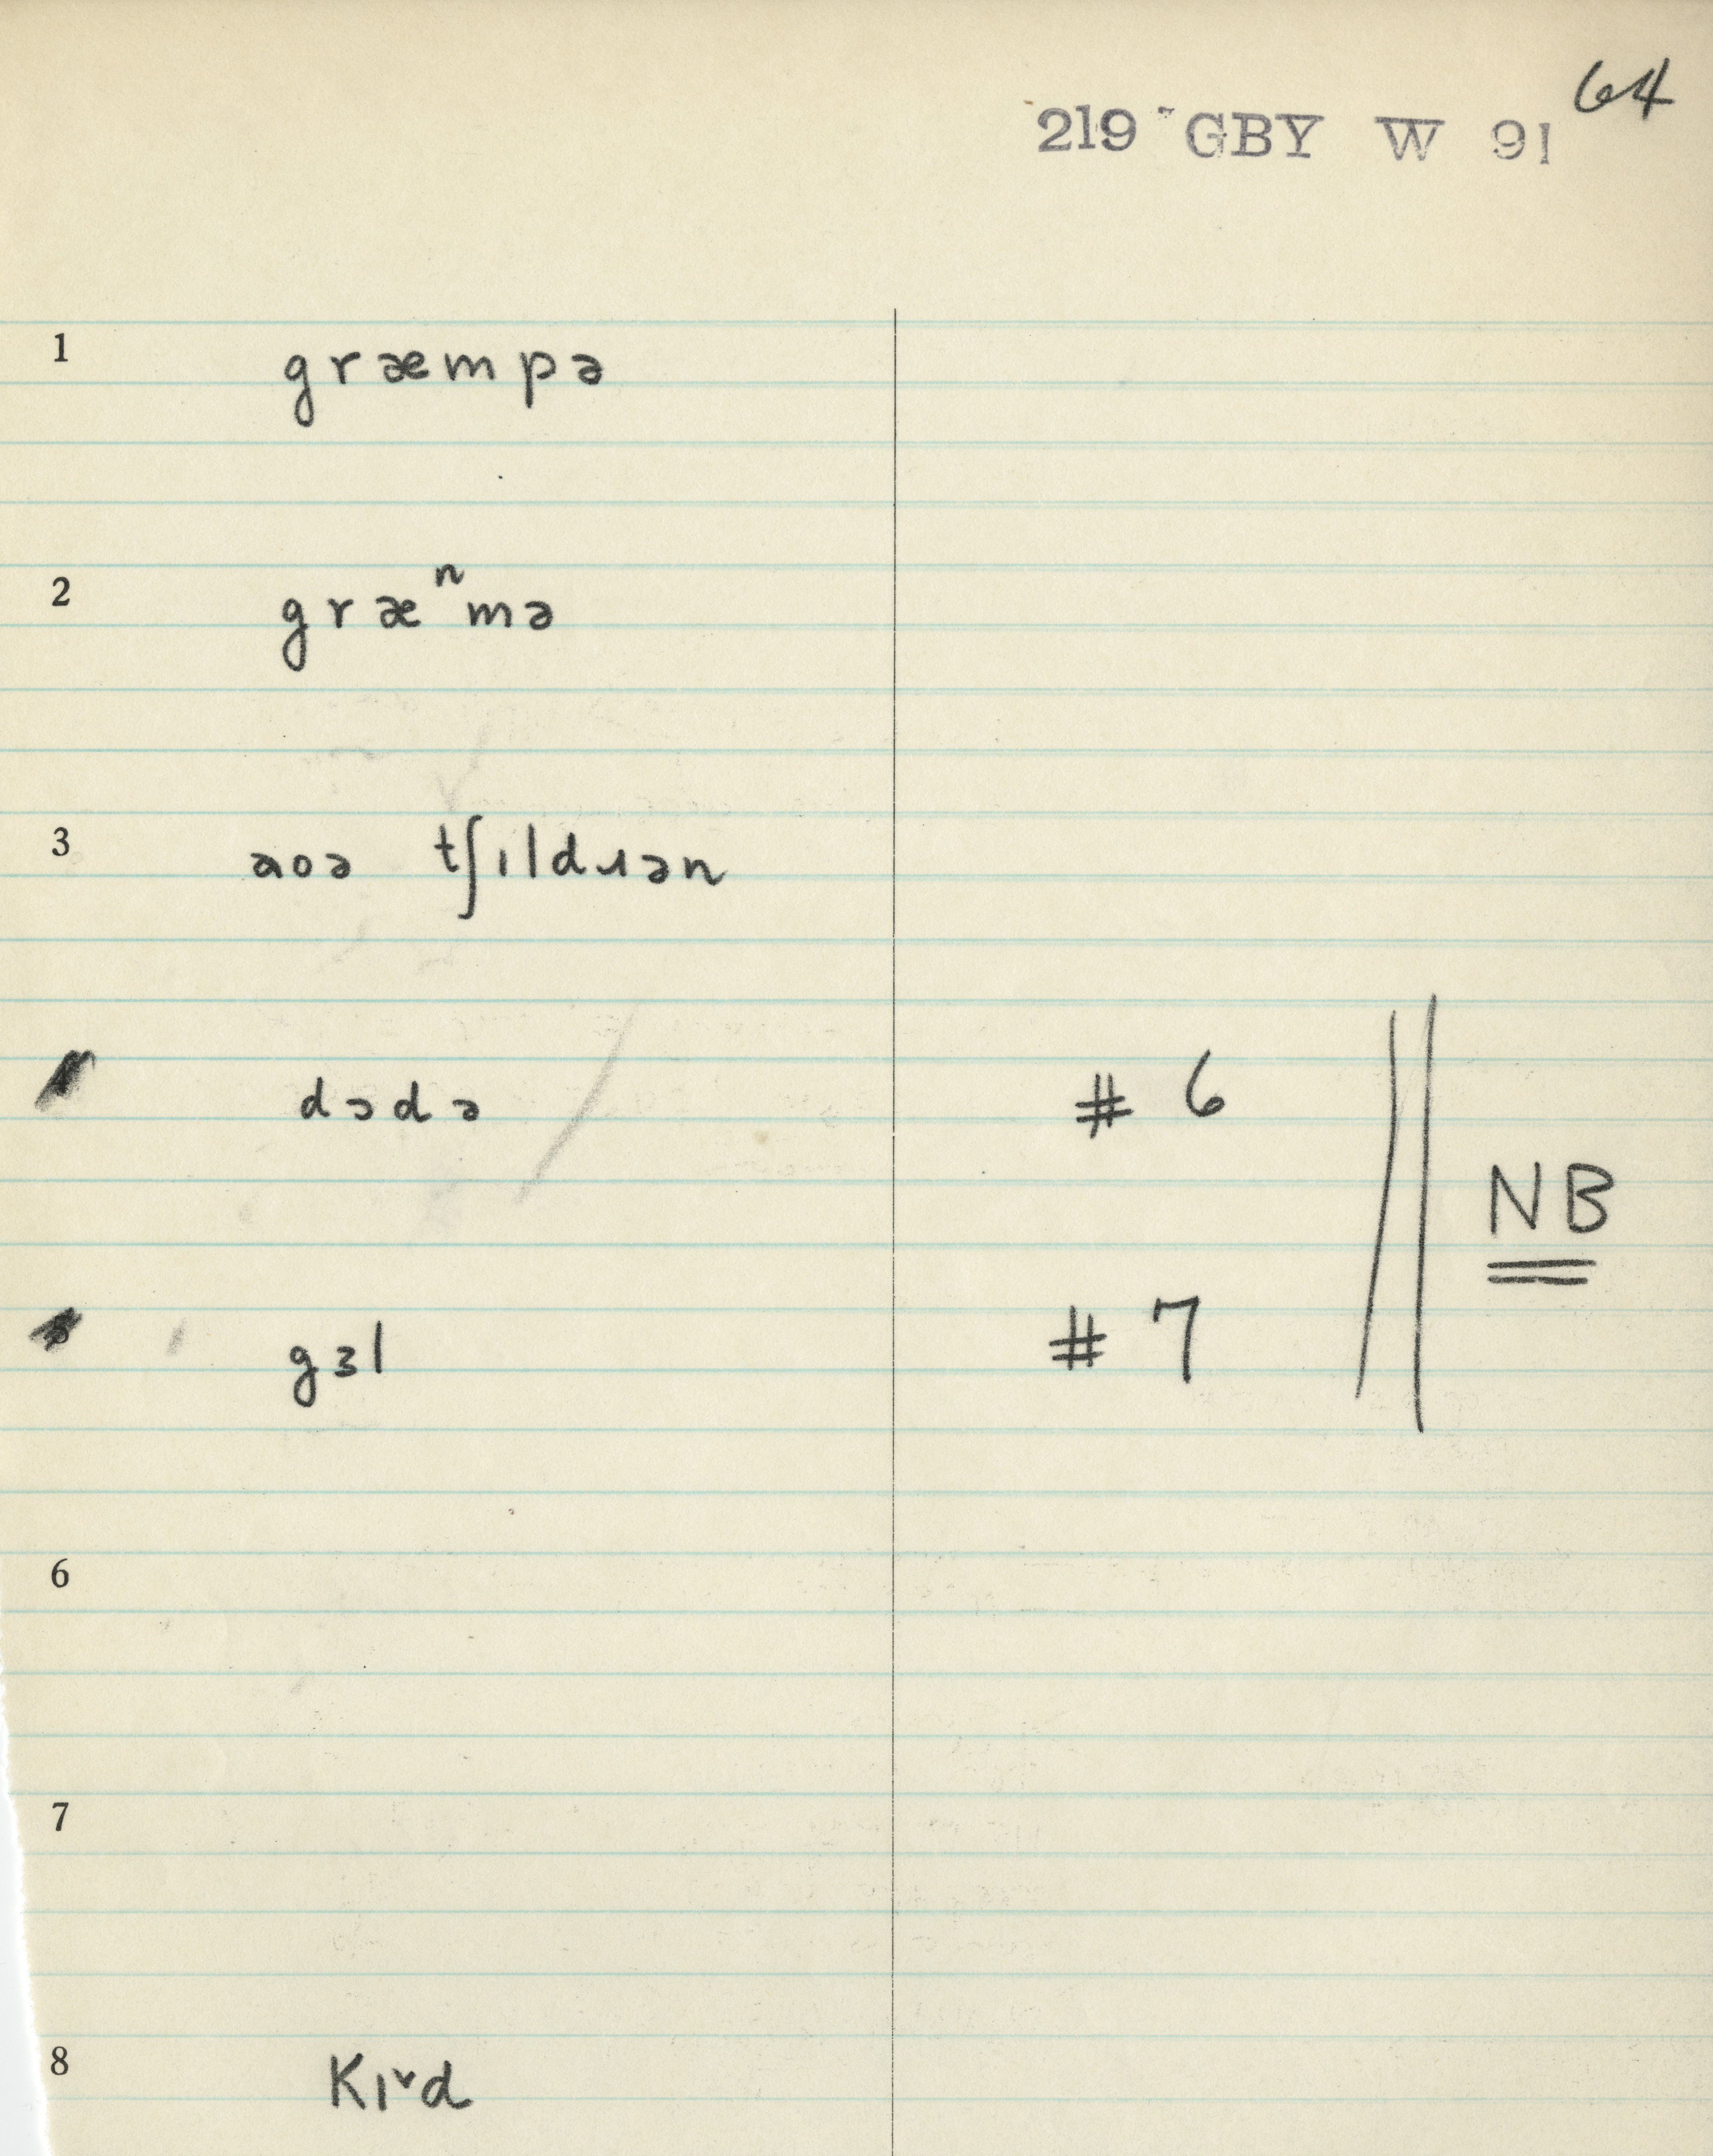 64
219 GBY W 91
1 græmpə
2 græⁿmə
3 aoə tʃɪldɹən
dɔdə # 6
NB
gɜl # 7
6
7
8 Kɪᵛd